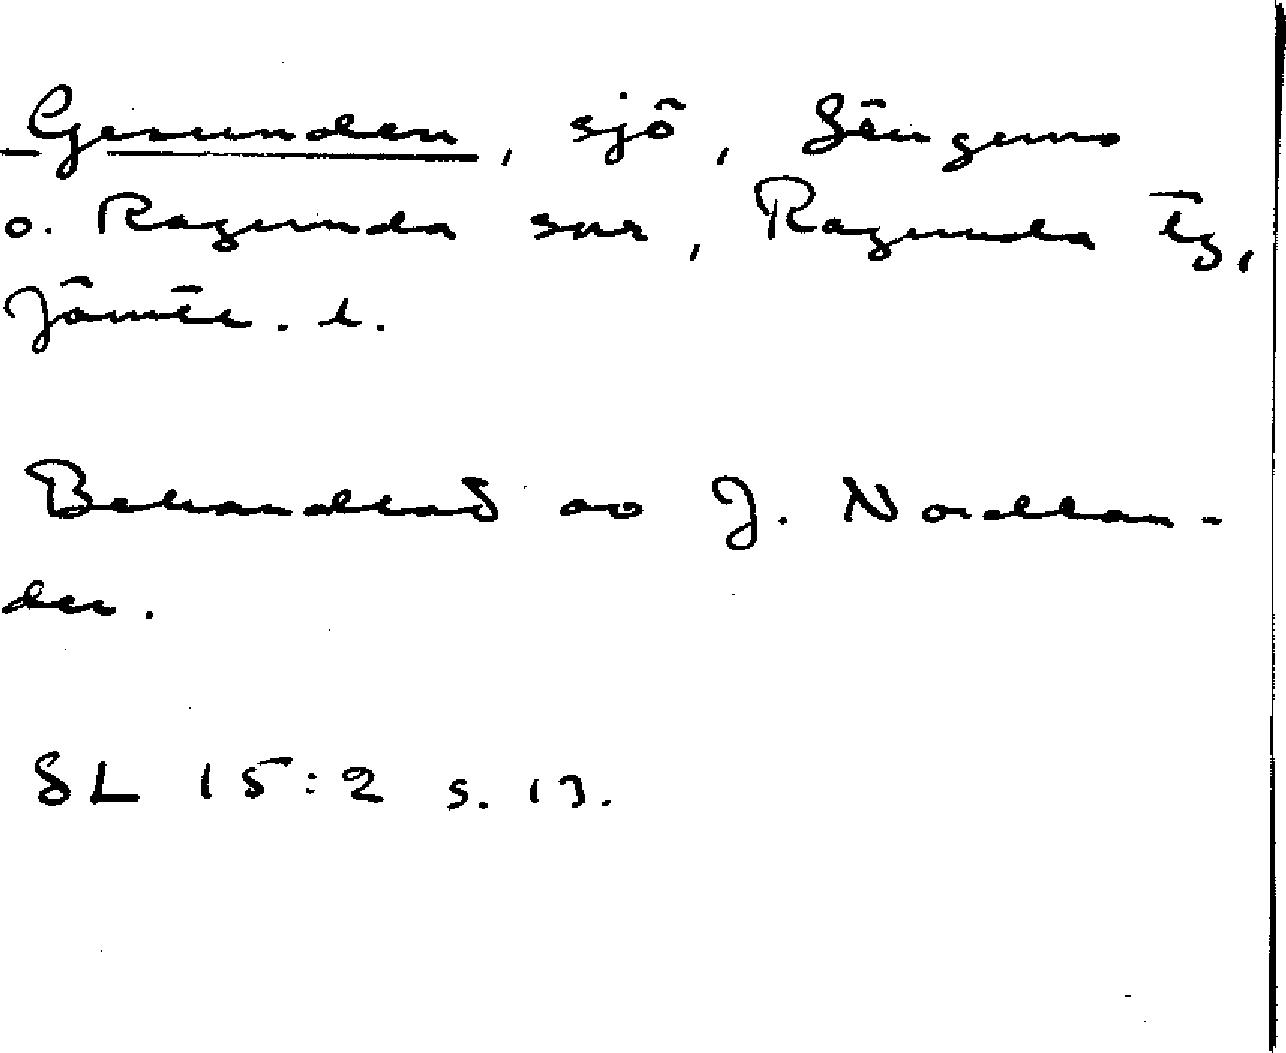 Gesunden, sjö, Stuguns
o. Ragunda snr, Ragunda tg,
Jämtl. l.
Behandlad av J. Nordlan-
der.
SL 15:2 s. 17.